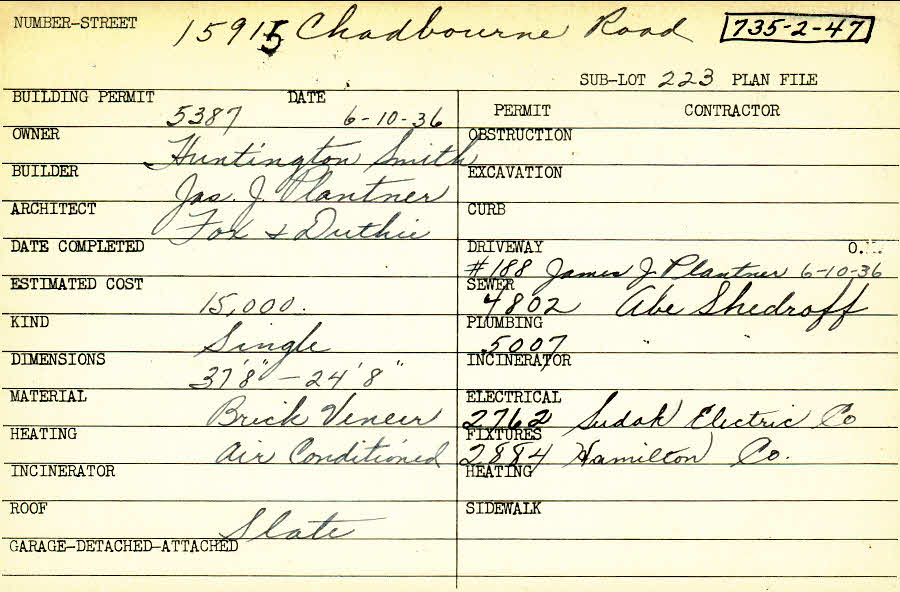 NUMBER-STREET 15915 Chadbourne Road 735-2-47
SUB-LOT 223 PLAN FILE
BUILDING PERMIT 5387 DATE 6-10-36
OWNER Huntington Smith
BUILDER Jas. J. Plantner
ARCHITECT Fox & Duthie
DATE COMPLETED
ESTIMATED COST 15,000.
KIND Single
DIMENSIONS 37'8" - 24'8"
MATERIAL Brick Veneer
HEATING Air Conditioned
INCINERATOR
ROOF Slate
GARAGE-DETACHED-ATTACHED
PERMIT CONTRACTOR
OBSTRUCTION
EXCAVATION
CURB
DRIVEWAY O.K.
#188 James J. Plantner 6-10-36
SEWER
4802 Abe Shedroff
PLUMBING
5007 " "
INCINERATOR
ELECTRICAL
2762 Sudak Electric Co
FIXTURES
2884 Hamilton Co.
HEATING
SIDEWALK